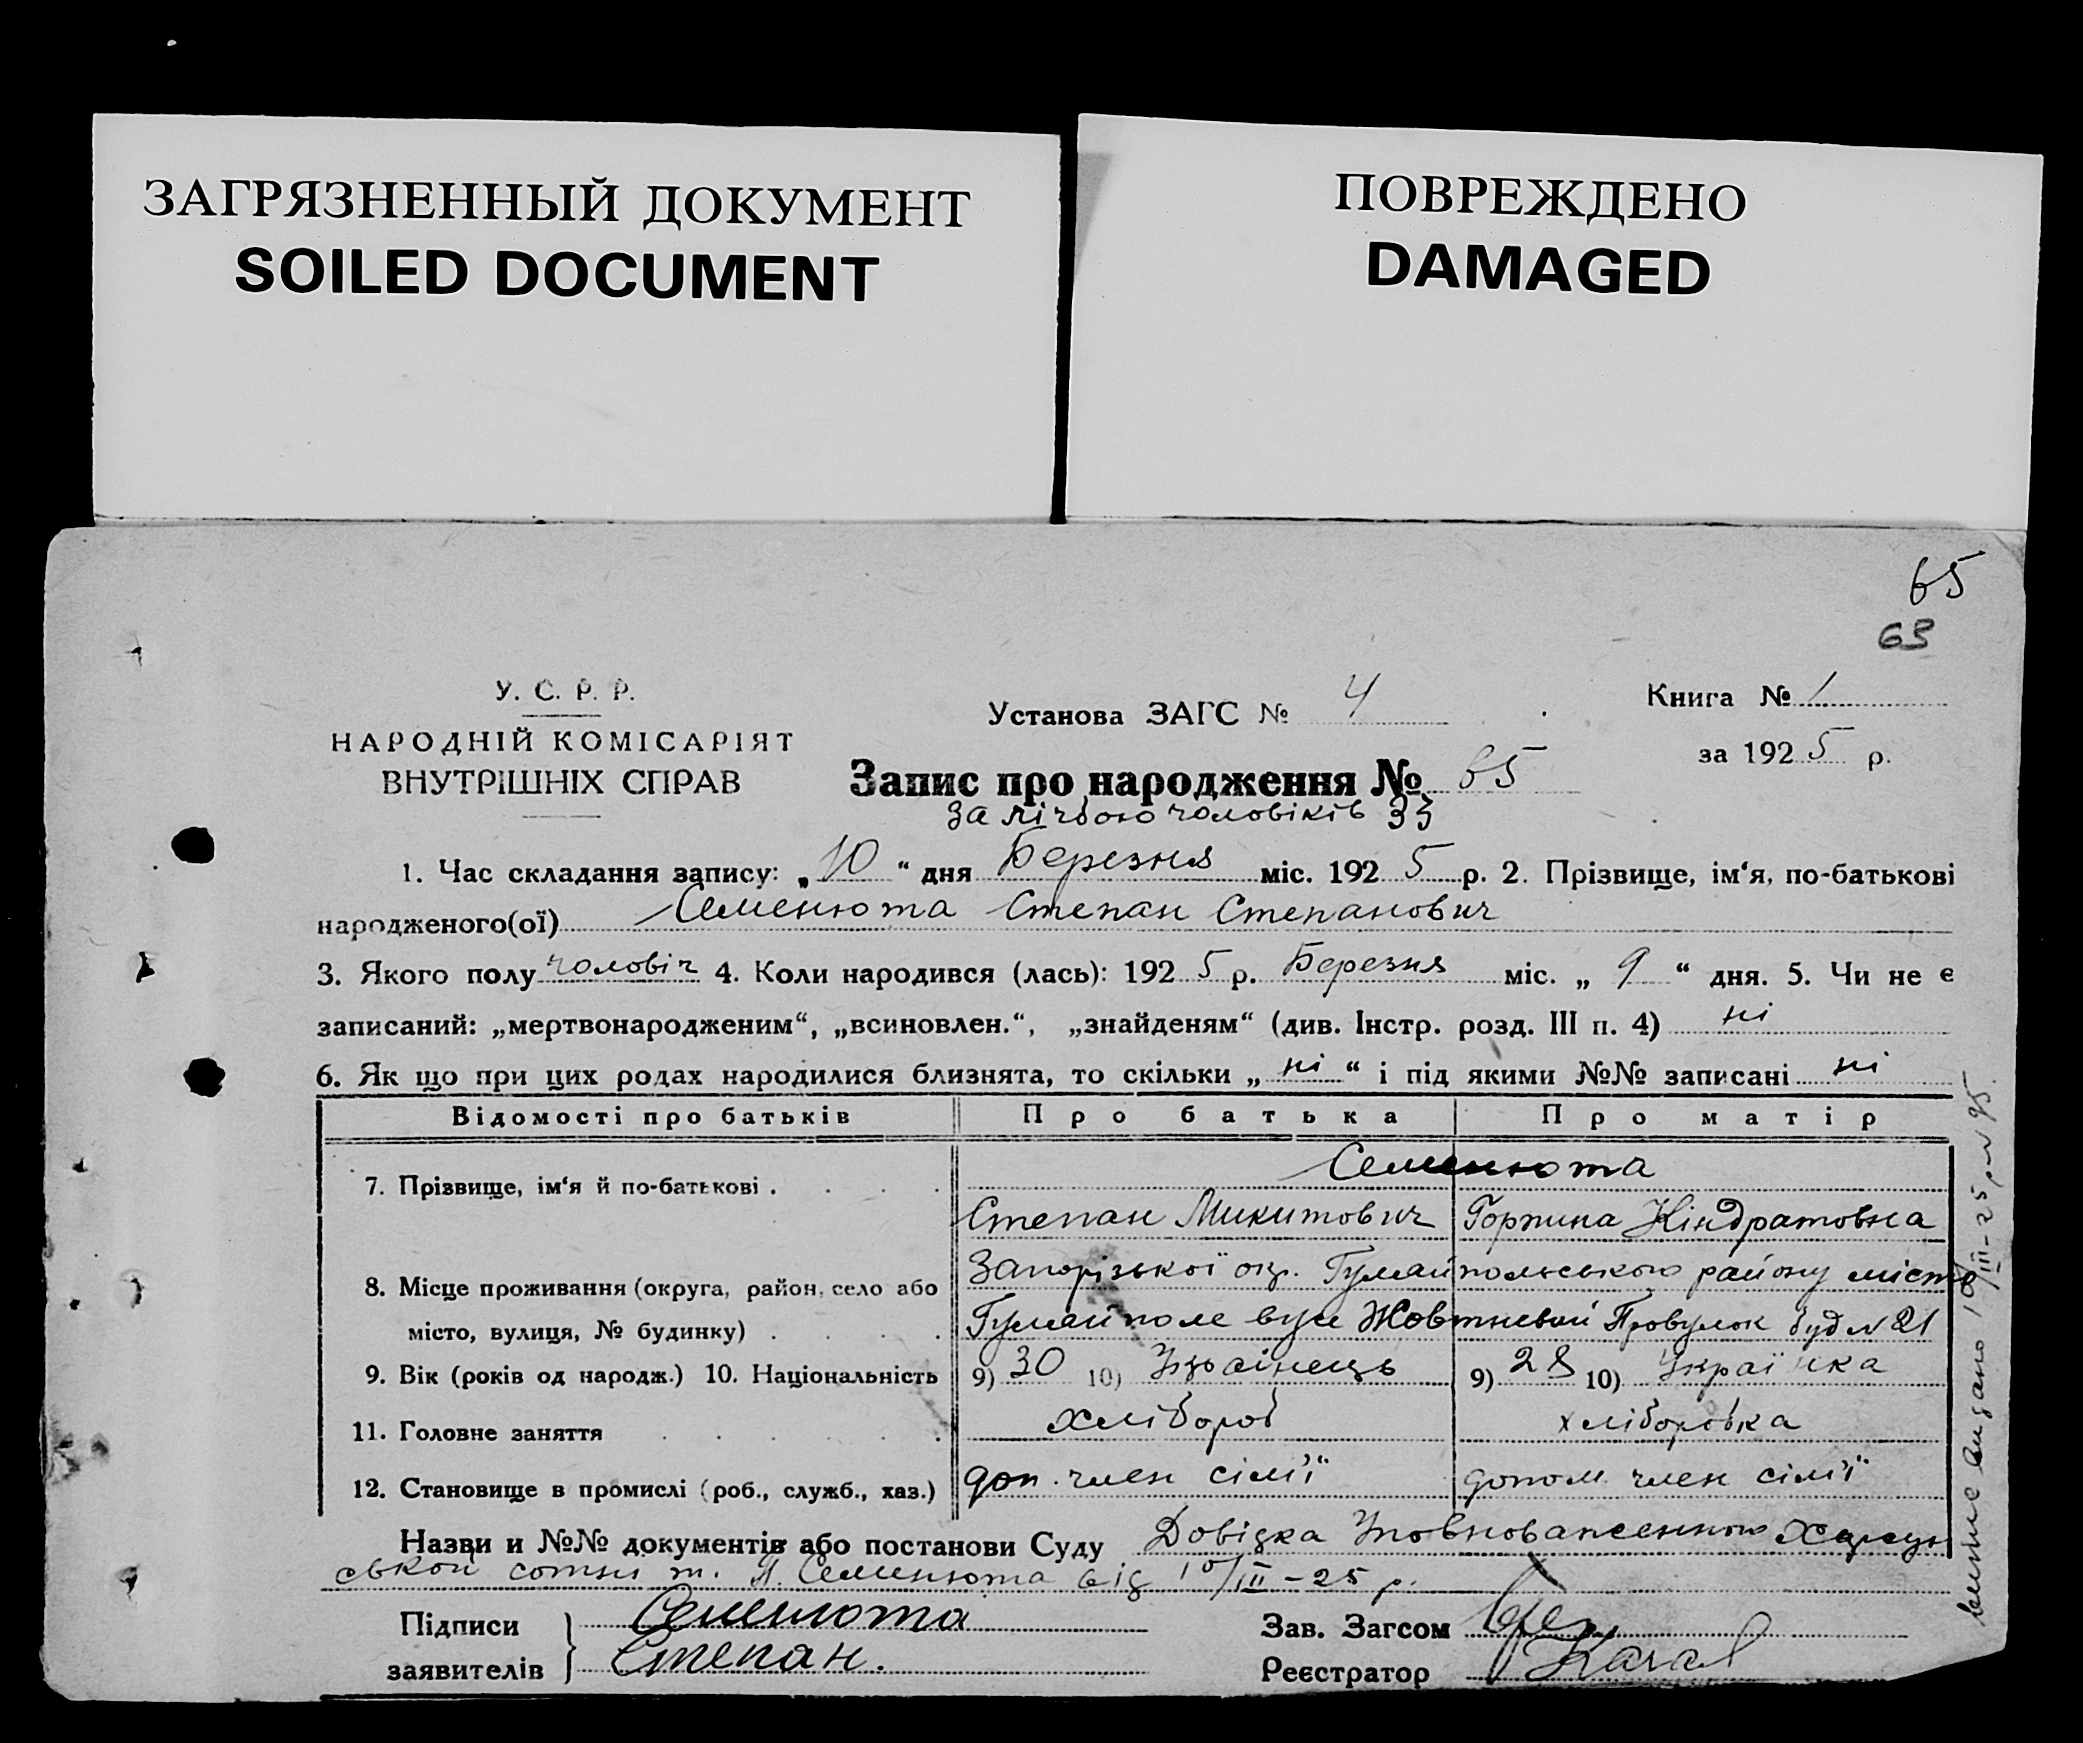 ЗАГРЯЗНЕННЫЙ ДОКУМЕНТ
SOILED DOCUMENT
ПОВРЕЖДЕНО
DAMAGED
65
63
У. С. Р. Р.
НАРОДНІЙ КОМІСАРІЯТ
ВНУТРІШНІХ СПРАВ
Установа ЗАГС № 4
Книга № 1
за 1925 р.
Запис про народження № 65
за лічбою чоловіків 33
1. Час складання запису: „10“ дня Березня міс. 1925 р. 2. Прізвище, ім‘я, по-батькові
народженого(ої) Семенюта Степан Степанович
3. Якого полу чоловіч 4. Коли народився (лась): 1925 р. Березня міс. „9“ дня. 5. Чи не є
записаний: „мертвонародженим“, „всиновлен.“, „знайденям“ (див. Інстр. розд. III п. 4) ні
6. Як що при цих родах народилися близнята, то скільки „ні“ і під якими №№ записані ні
Відомості про батьків Про батька Про матір
Семенюта
7. Прізвище, ім‘я й по-батькові .
Степан Микитович Горпина Кіндратовна
Запорізької окр. Гуляйпольського району місто
8. Місце проживання (округа, район, село або
місто, вулиця, № будинку) . Гуляйполе вул Жовтневий Провулок буд № 21
9. Вік (років од народж.) 10. Національність 9) 30 10) Українець 9) 28 10) Українка
11. Головне заняття хлібороб хліборобка
12. Становище в промислі (роб., служб., хаз.) доп. член сім'ї допом. член сім'ї
Назви и №№ документів або постанови Суду Довідка Уповноваженного
ської сотні т. П. Семенюта від 10/III – 25 р.
Підписи заявителів
Семенюта
Степан.
Зав. Загсом
Реєстратор
видано 10/III – 25 р. № 95